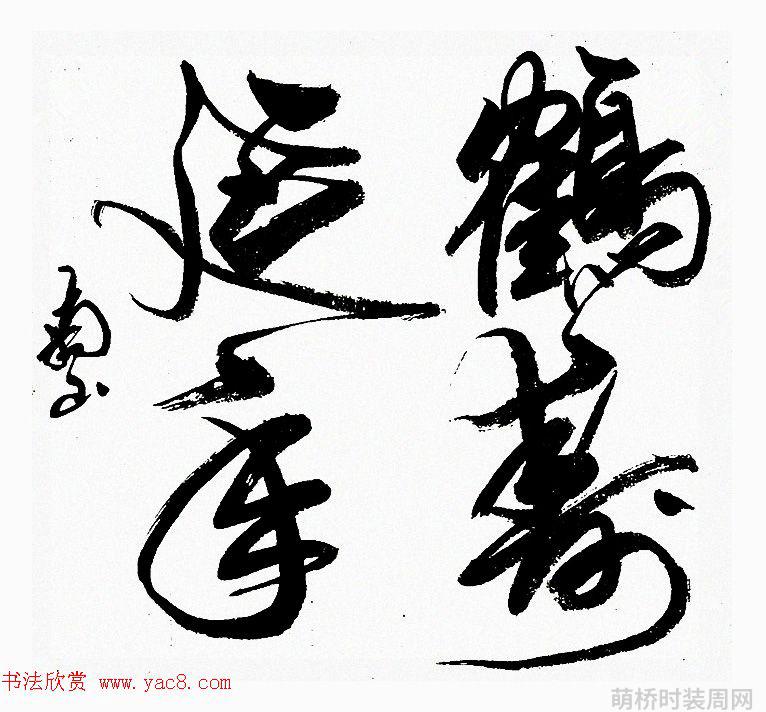 鶴寿
延年
书法欣赏 www.yac8.com
萌桥时装周网